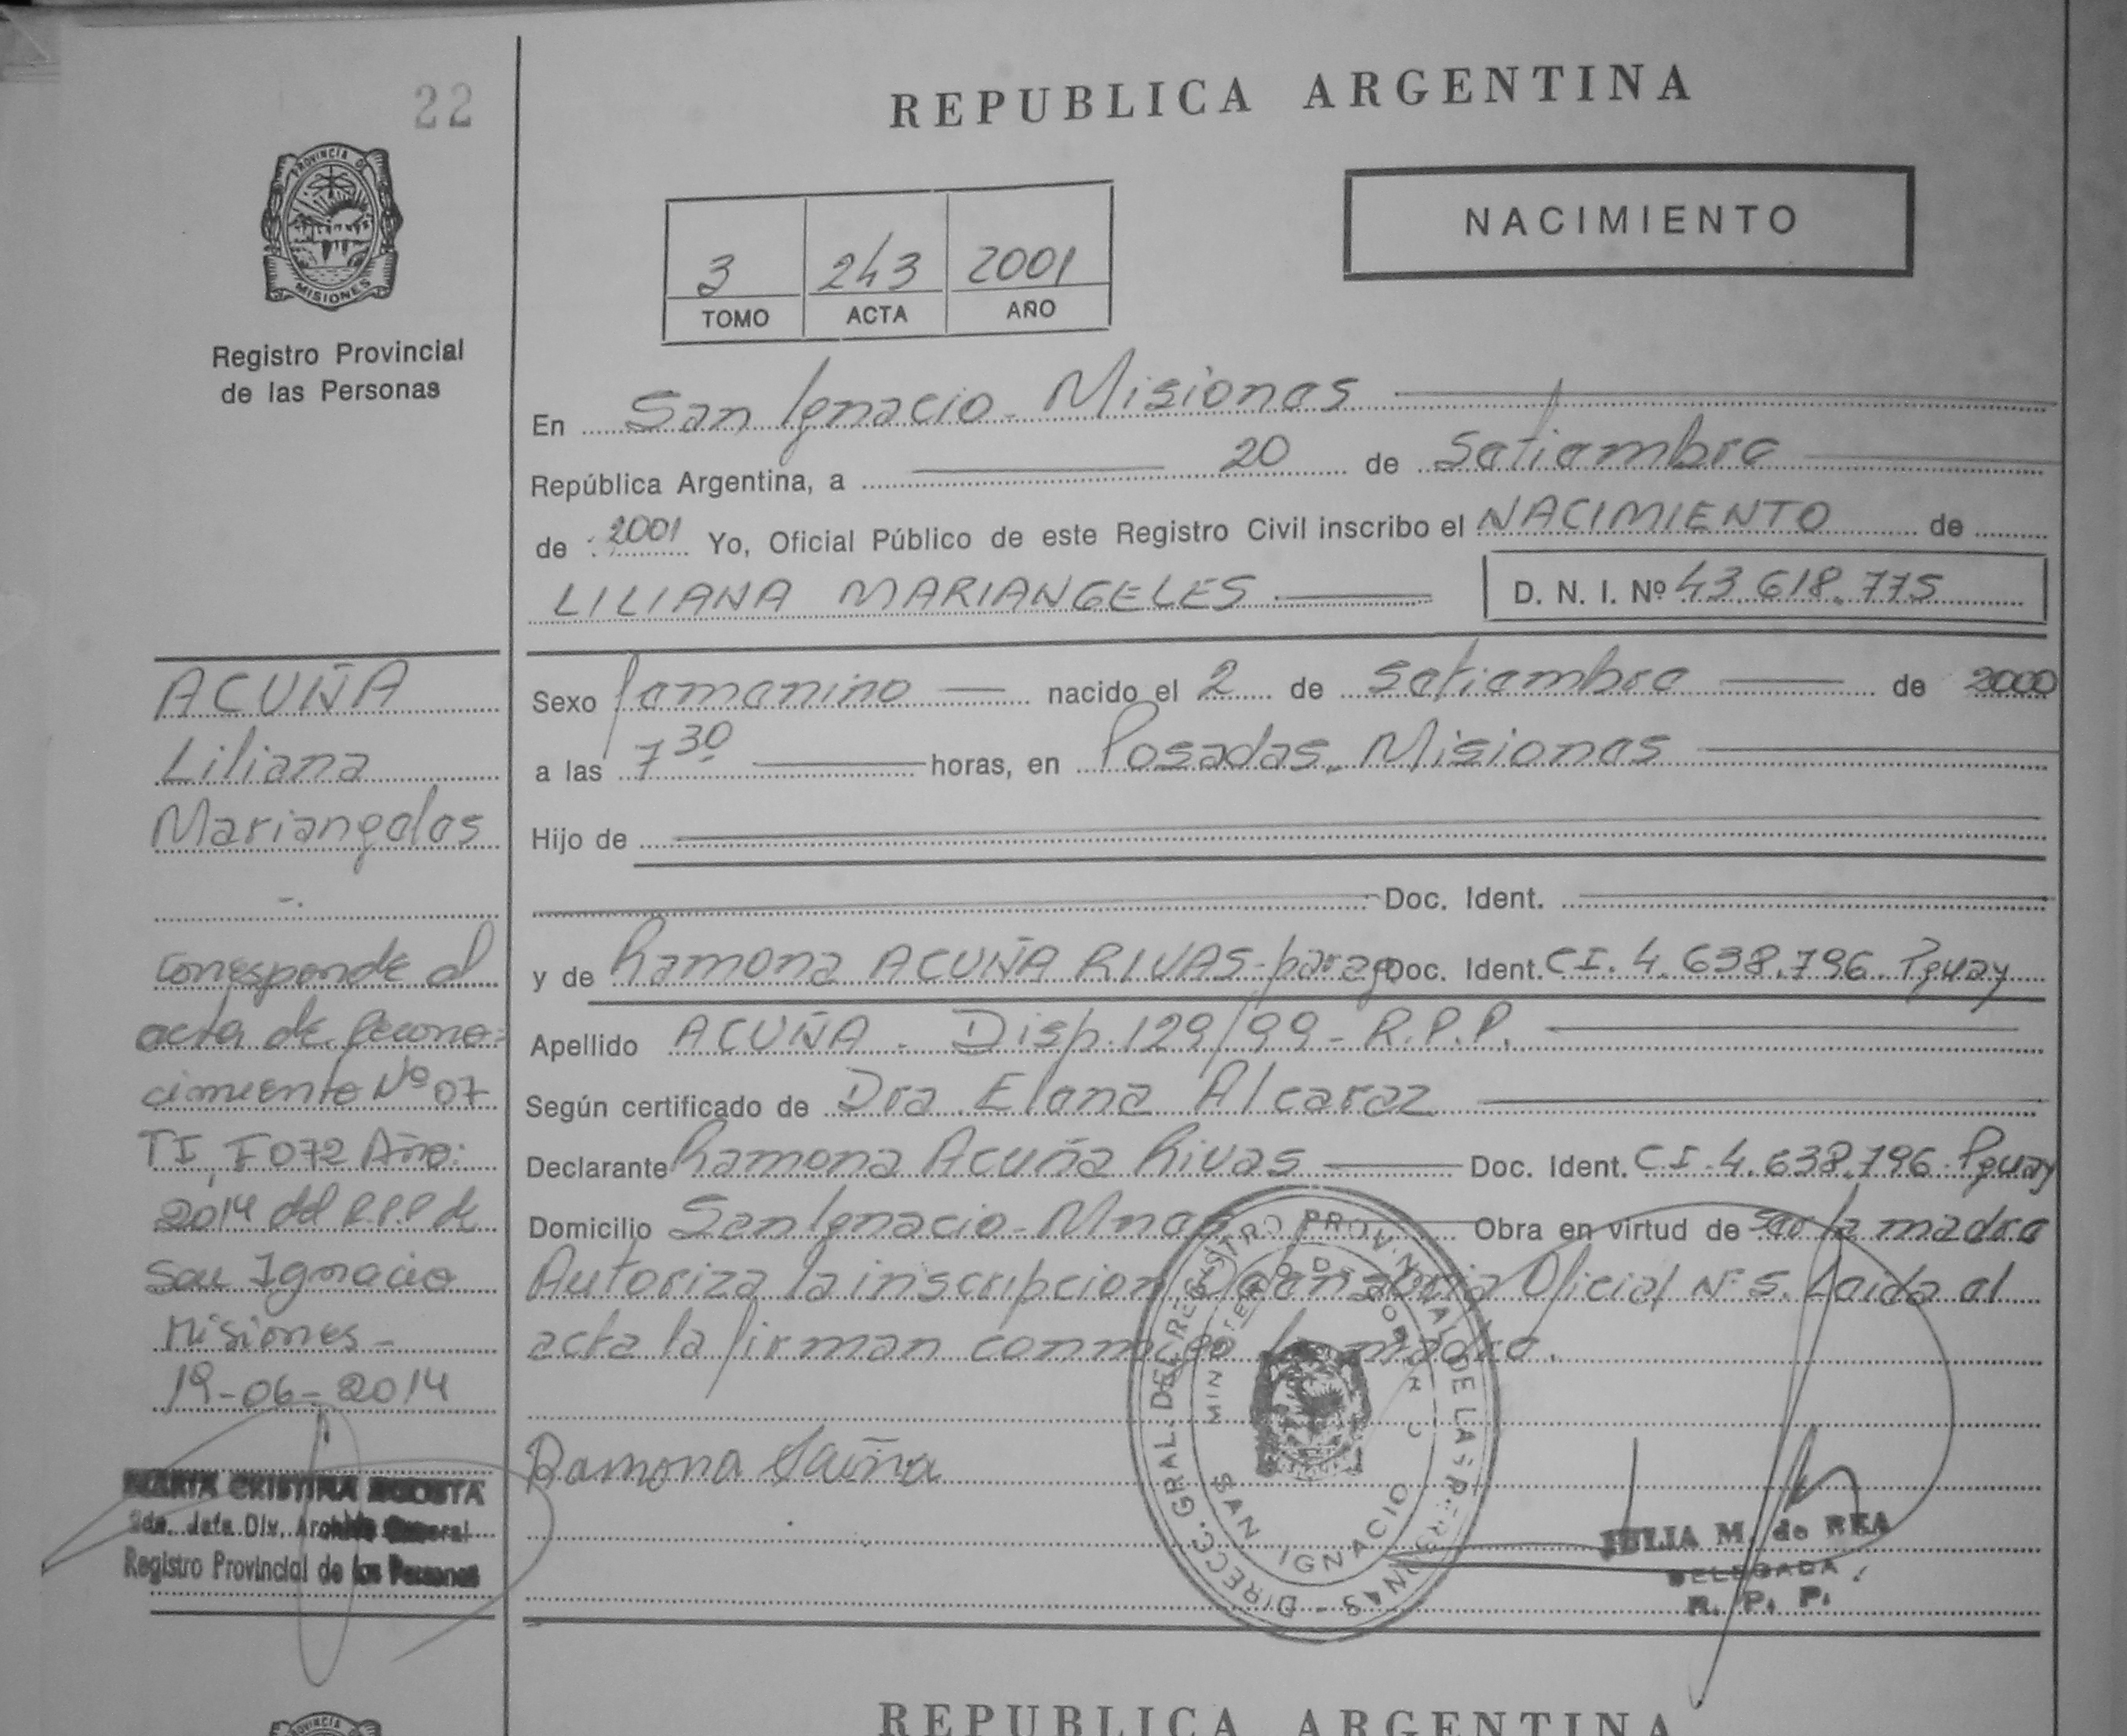 22
PROVINCIA DE
MISIONES
Registro Provincial
de las Personas
REPUBLICA ARGENTINA
NACIMIENTO
3 243 2001
TOMO ACTA AÑO
En San Ignacio - Misiones
República Argentina, a 20 de Setiembre
de 2001 Yo, Oficial Público de este Registro Civil inscribo el NACIMIENTO de
LILIANA MARIANGELES D. N. I. Nº 43.618.775
Sexo femenino nacido el 2 de Setiembre de 2000
a las 7 30 horas, en Posadas - Misiones
Hijo de
Doc. Ident.
y de Ramona ACUÑA RIVAS - parag Doc. Ident. CI. 4.638.796. Pguay
Apellido ACUÑA - Disp. 129/99 - R.P.P.
Según certificado de Dra Elena Alcaraz
Declarante Ramona Acuña Rivas Doc. Ident. CI. 4.638.796. Pguay
Domicilio San Ignacio - Mnes Obra en virtud de ser la madre
Autoriza la inscripcion Defensoria Oficial Nº 5. Leida el
acta la firman conmigo la madre.
Ramona
DIRECC. GRAL. DEL REGISTRO PROVINCIAL DE LAS PERSONAS -
MINISTERIO DE GOBIERNO
SAN IGNACIO
JULIA M. de REA
DELEGADA
R. P. P.
ACUÑA
Liliana
Mariangeles
-.
Corresponde al
acta de Recono-
cimiento Nº 07
TI, Fº 072 Año:
2014 del R.P.P de
San Ignacio
Misiones -
19-06-2014
MARIA CRISTINA ACOSTA
Jefe Div. Archivo General
Registro Provincial de las Personas
PROVINCIA
REPUBLICA ARGENTINA